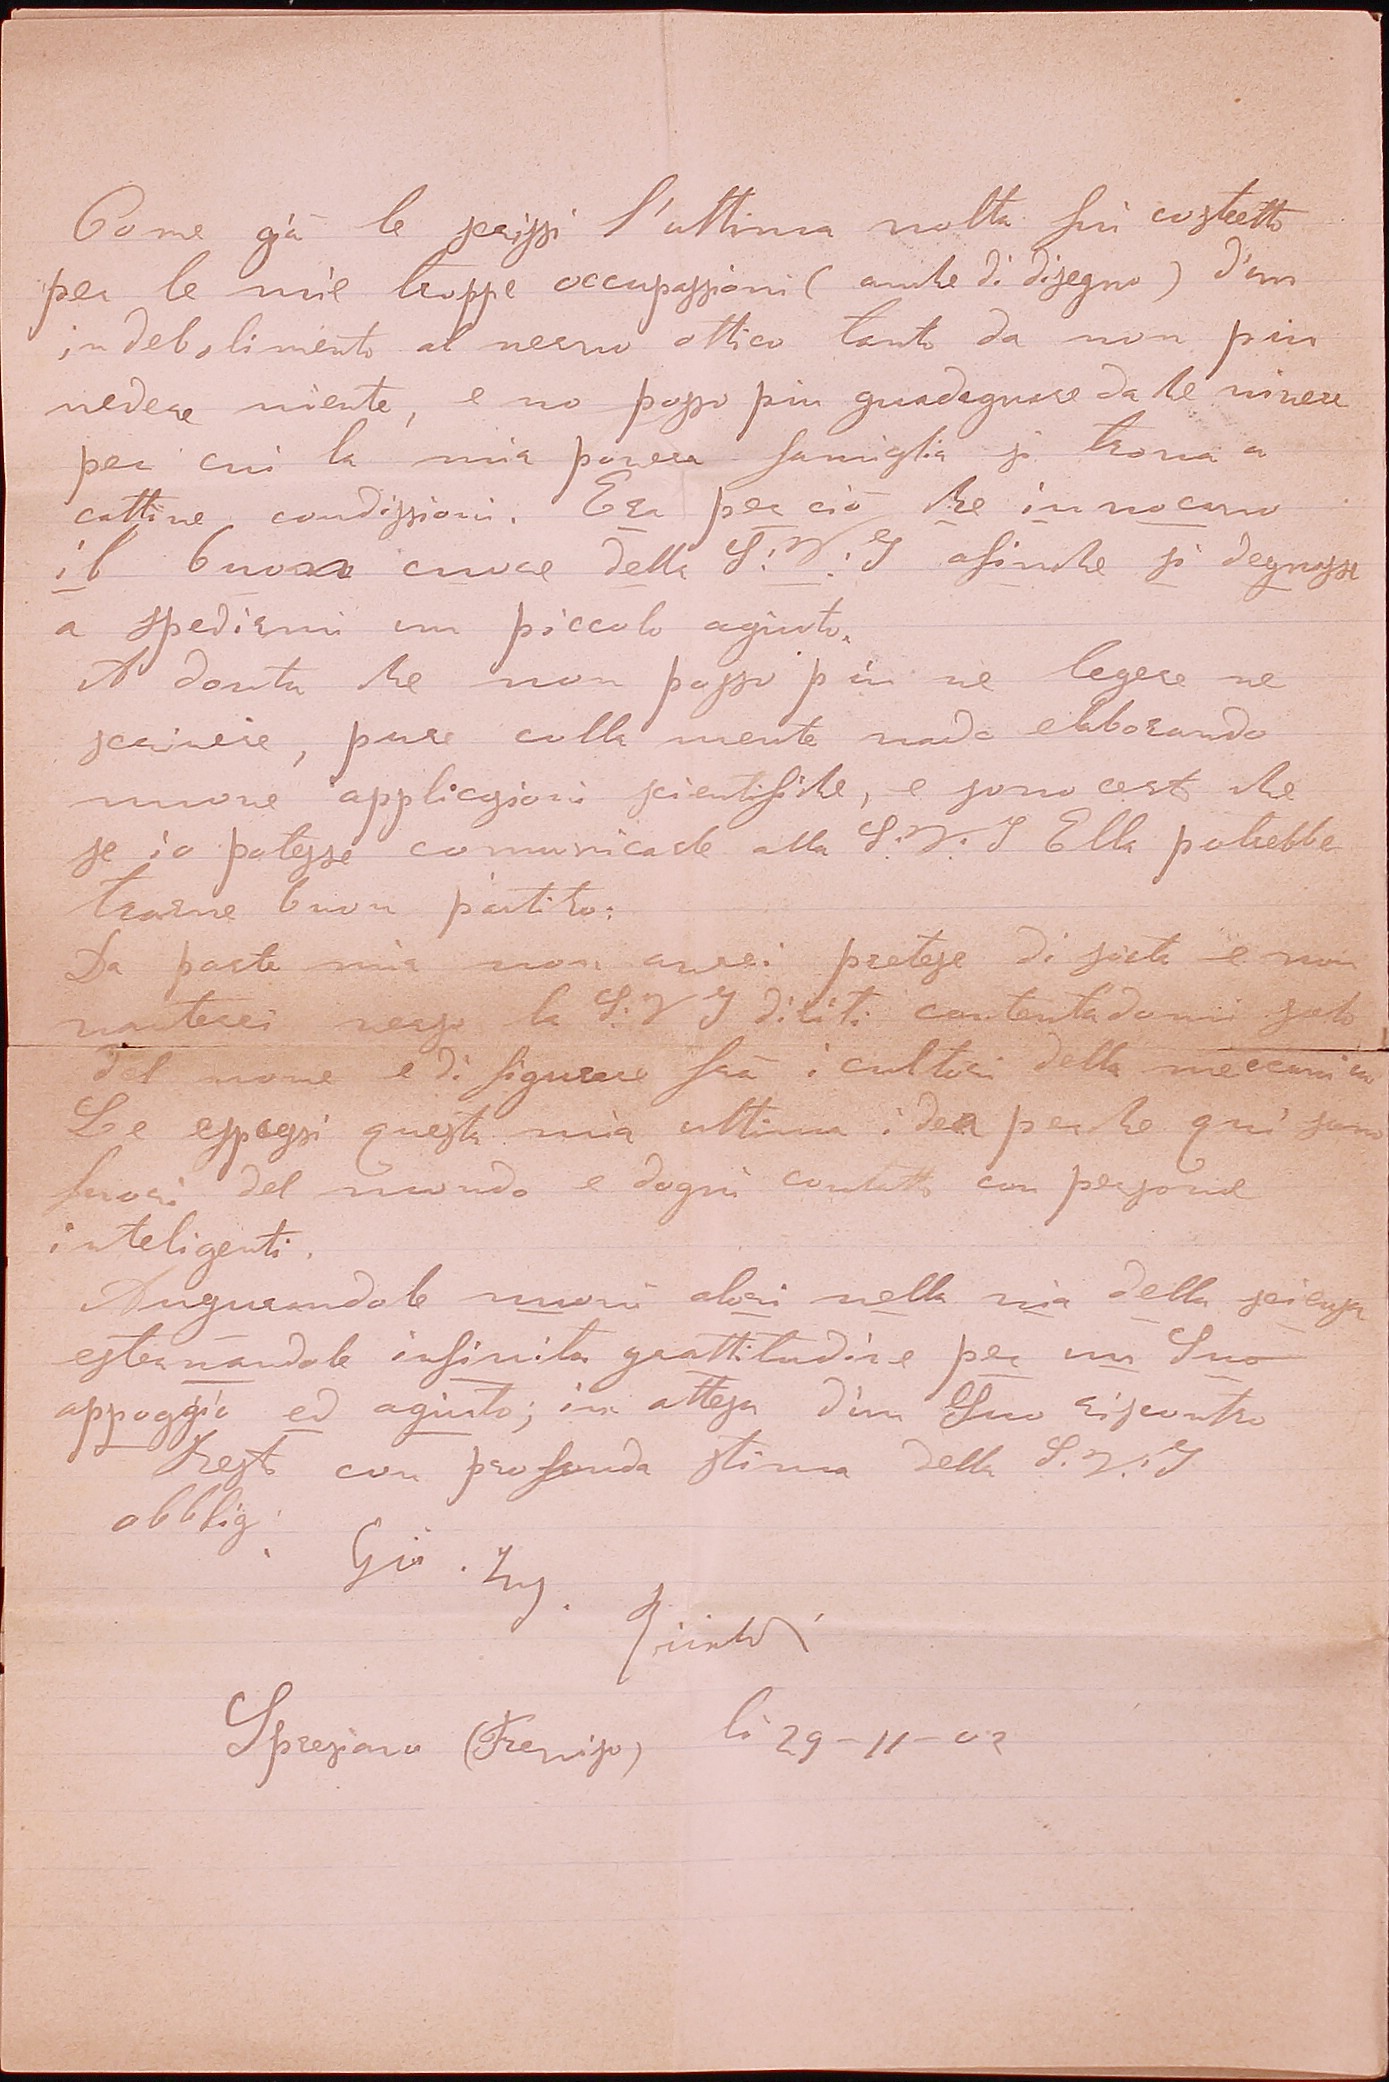 Come già le scrissi l'ultima volta fui costretto
per le mie troppe occupassioni ( anche di disegno ) d'un
indebolimento al nervo ottico tanto da non piu
vedere niente, e no posso piu guadagnare da che vivere
per cui la mia povera famiglia si trova a
cattive condissioni. Era per ciò che invocavo
il buon cuore della S.V.I afinche si degnasse
a spedirmi un piccolo agiuto.
A donta che non posso piu ne legere ne
scrivere, pure colla mente vado elaborando
nuove applicasioni scientifiche, e sono certo che
se io potesse comunicarle alla S.V.I Ella potrebbe
trarne buon partito.
Da parte mia non avrei pretese di sorta e non
vanterei verso la S.V I diriti contentadomi solo
del nome e di figurare frà i cultori della meccanica
Le espossi questa mia ultima idea perche qui sono
fuori del mondo e dogni contatto con persone
inteligenti.
Augurandole nuovi alori nella via della sciensa
esternandole infinita grattitudine per un Suo
appoggio ed agiuto; in attesa d'un Suo riscontro
Resto con profonda stima della S.V.I
obblig.
Gio. Ing.
Spresiano (Treviso) li 29-11-02